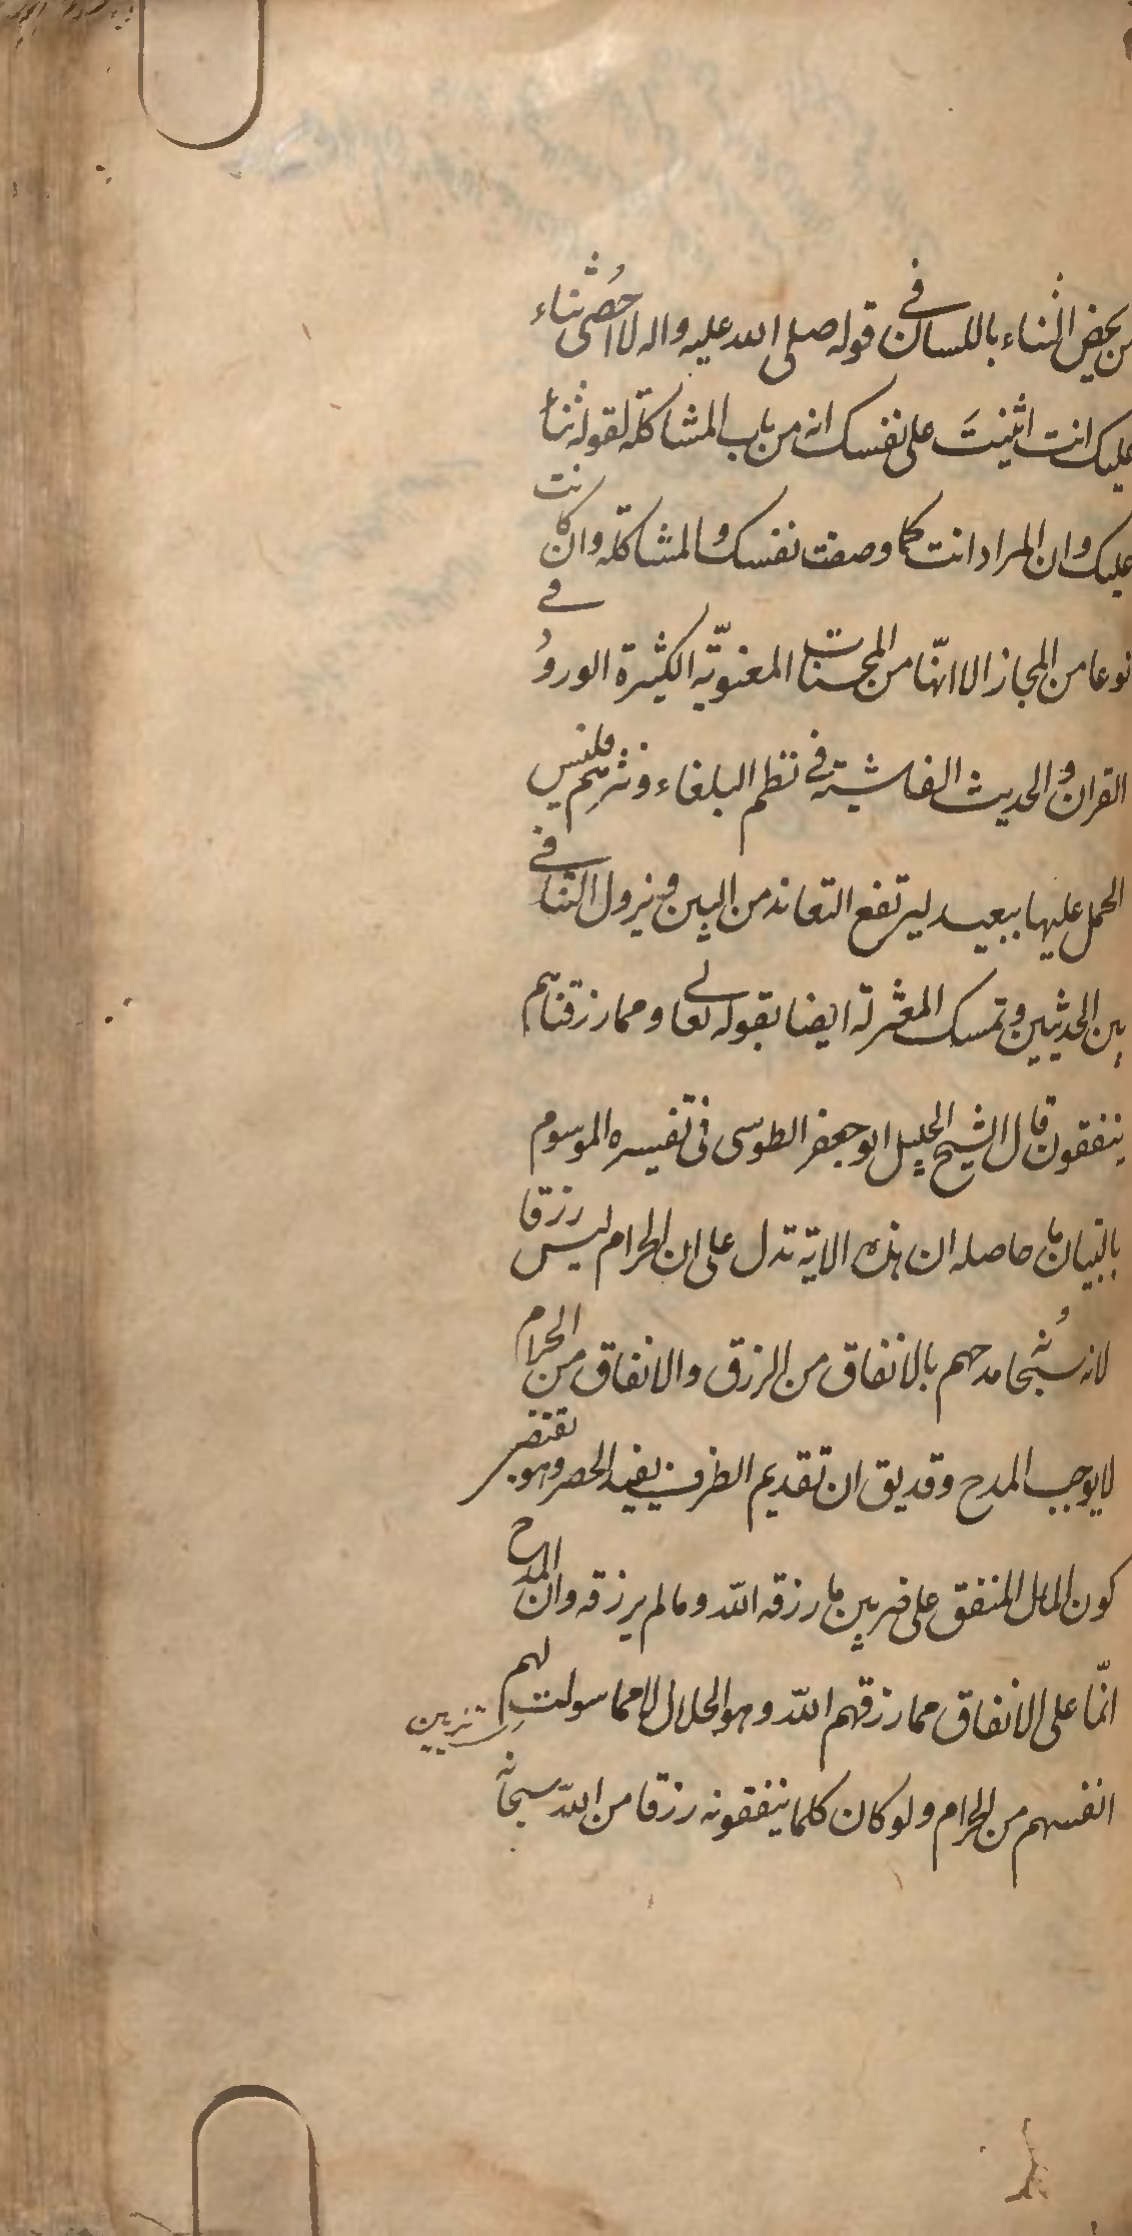 من يخص الثناء باللسان في قوله صلى الله عليه واله لا احصى ثناء
عليك انت اثنيتَ على نفسك انه من باب المشاكلة لقوله ثناء
عليك وان المراد انت كما وصفت نفسك والمشاكلة وان كانت
نوعا من المجاز الا انّها من المحسنات المعنويّة الكثيرة الورود في
القران والحديث الفاشية في نظم البلغاء ونثرهم فليس
الحمل عليها ببعيد ليرتفع التعاند من البين ويزول التنافي
بين الحديثين وتمسك المعتزلة ايضا بقوله تعالى ومما رزقناهم
ينفقون قال الشيخ الجليل ابو جعفر الطوسى في تفسيره الموسوم
بالتبيان ما حاصله ان هذه الاية تدل على ان الحرام ليس رزقا
لانه سُبحانه مدحهم بالانفاق من الرزق والانفاق من الحرام
لا يوجب المدح وقد يق ان تقديم الظرف يفيد الحصر وهو يقتضى
كون المال المنفق على ضربين ما رزقه الله وما لم يرزقه وان المدح
انّما على الانفاق مما رزقهم الله وهو الحلال لا مما سولت لهم
تزيين
انفسهم من الحرام ولو كان كلما ينفقونه رزقا من الله سبحانه